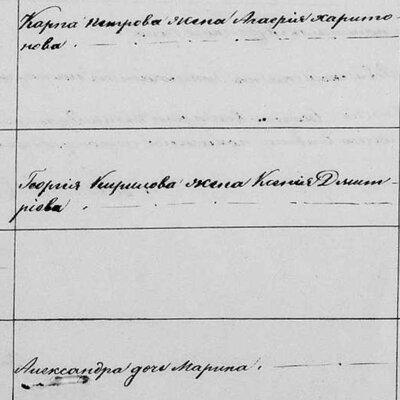 Карпа Петрова жена Агафія Харито-
нова.
Георгія Кирилова жена Ксенія Дмит-
ріова
Александра дочь Марина.